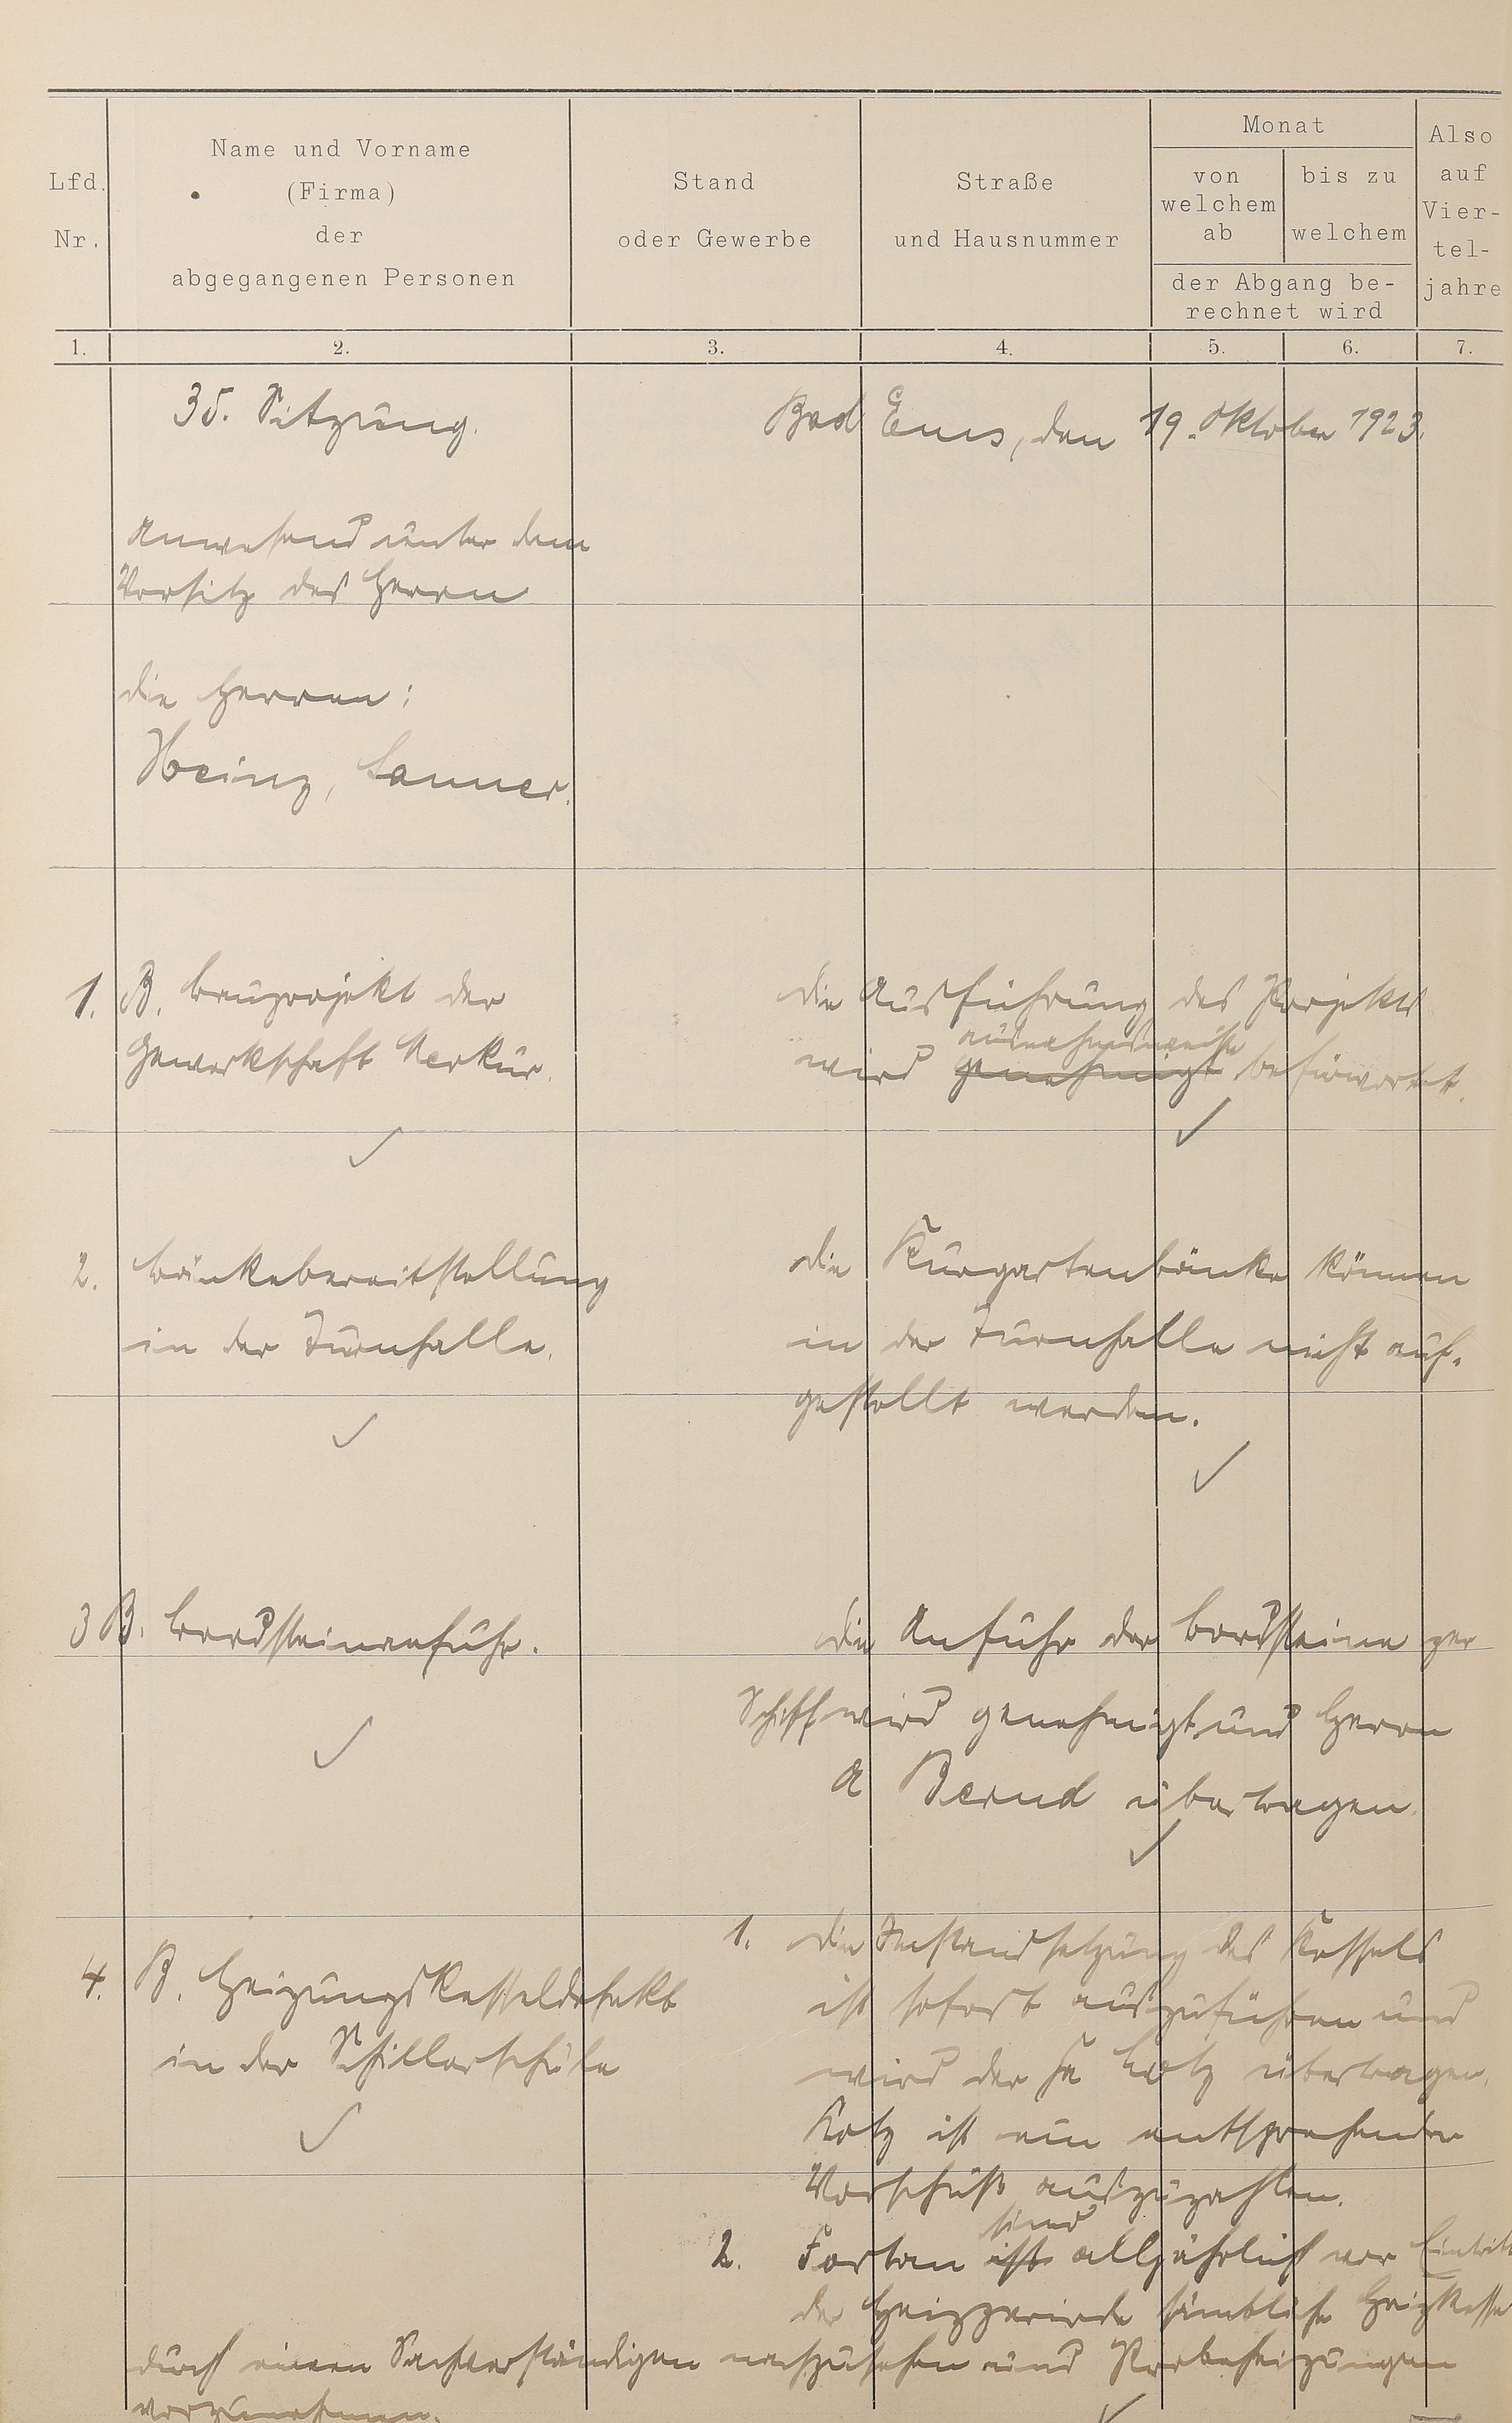 Lfd. Nr.
Name und Vorname
(Firma)
der
abgegangenen Personen
Stand
oder Gewerbe
Straße
und Hausnummer
Monat
von
welchem
ab
bis zu
welchem
der Abgang be-
rechnet wird
Also
auf
Vier-
tel-
jahre
1. 2. 3. 4. 5. 6. 7.
35. Sitzung.
Bad Ems, den 19. Oktober 1923.
Anwesend unter dem
Vorsitz des Herrn
die Herren:
Heinz, Lanner.
1. B. Bauprojekt der
Gewerkschaft Merkur.
die Ausführung des Projekts
ausnahmsweise
wird genehmigt befürwortet.
2. Bänkebereitstellung
in der Turnhalle.
die Kurgartenbänke können
in der Turnhalle nicht auf-
gestellt werden.
3 B. Bordsteinanfuhr.
die Anfuhr der Bordsteine per
Schiff wird genehmigt und Herrn
A Bernd übertragen.
4. B. Heizungskesseldefekt
in der Schillerschule
1. die Instandsetzung des Kessels
ist sofort auszuführen und
wird der Fa Lotz übertragen.
Lotz ist ein entsprechender
Vorschuß auszuzahlen.
sind
2. Fortan ist alljährlich vor Eintritt
der Heizperiode sämtliche Heizkessel
durch einen Sachverständigen nachzusehen und Probeheizungen
vorzunehmen.